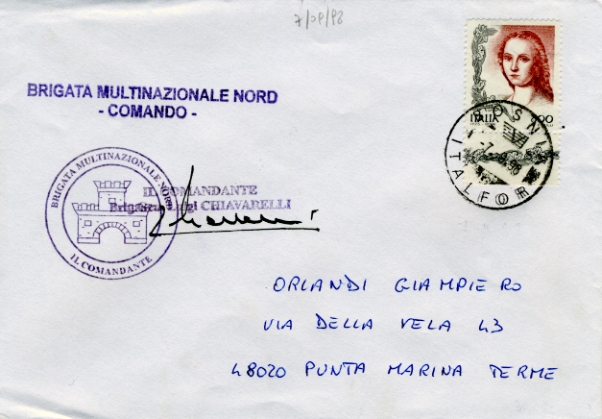 7/08/98
BRIGATA MULTINAZIONALE NORD
- COMANDO -
ITALIA 800
BOSNI
ITALFOR
BRIGATA MULTINAZIONALE NORD
IL COMANDANTE
IL COMANDANTE
CHIAVARELLI
ORLANDI GIAMPIERO
VIA DELLA VELA 43
48020 PUNTA MARINA TERME